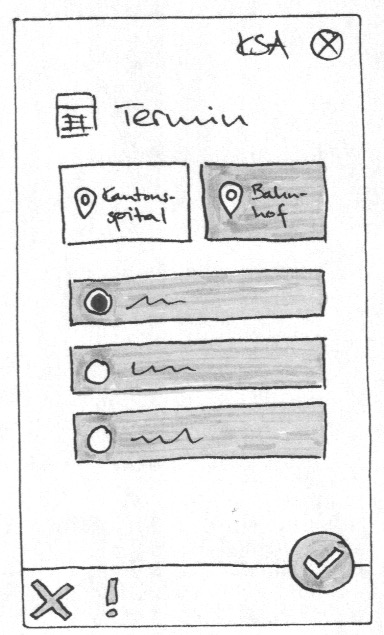 KSA
Termin
Kantons-
spital
Bahn-
hof
!